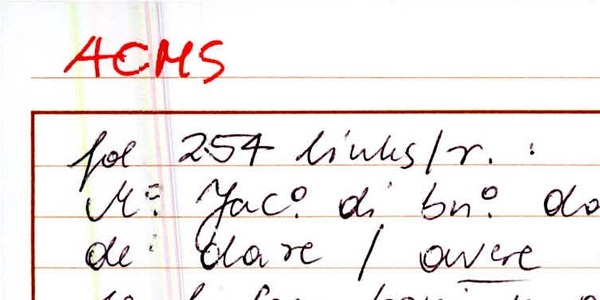 ACMS
fol 254 links/r. :
M:º Jac.º di bn.º do
de: dare / avere